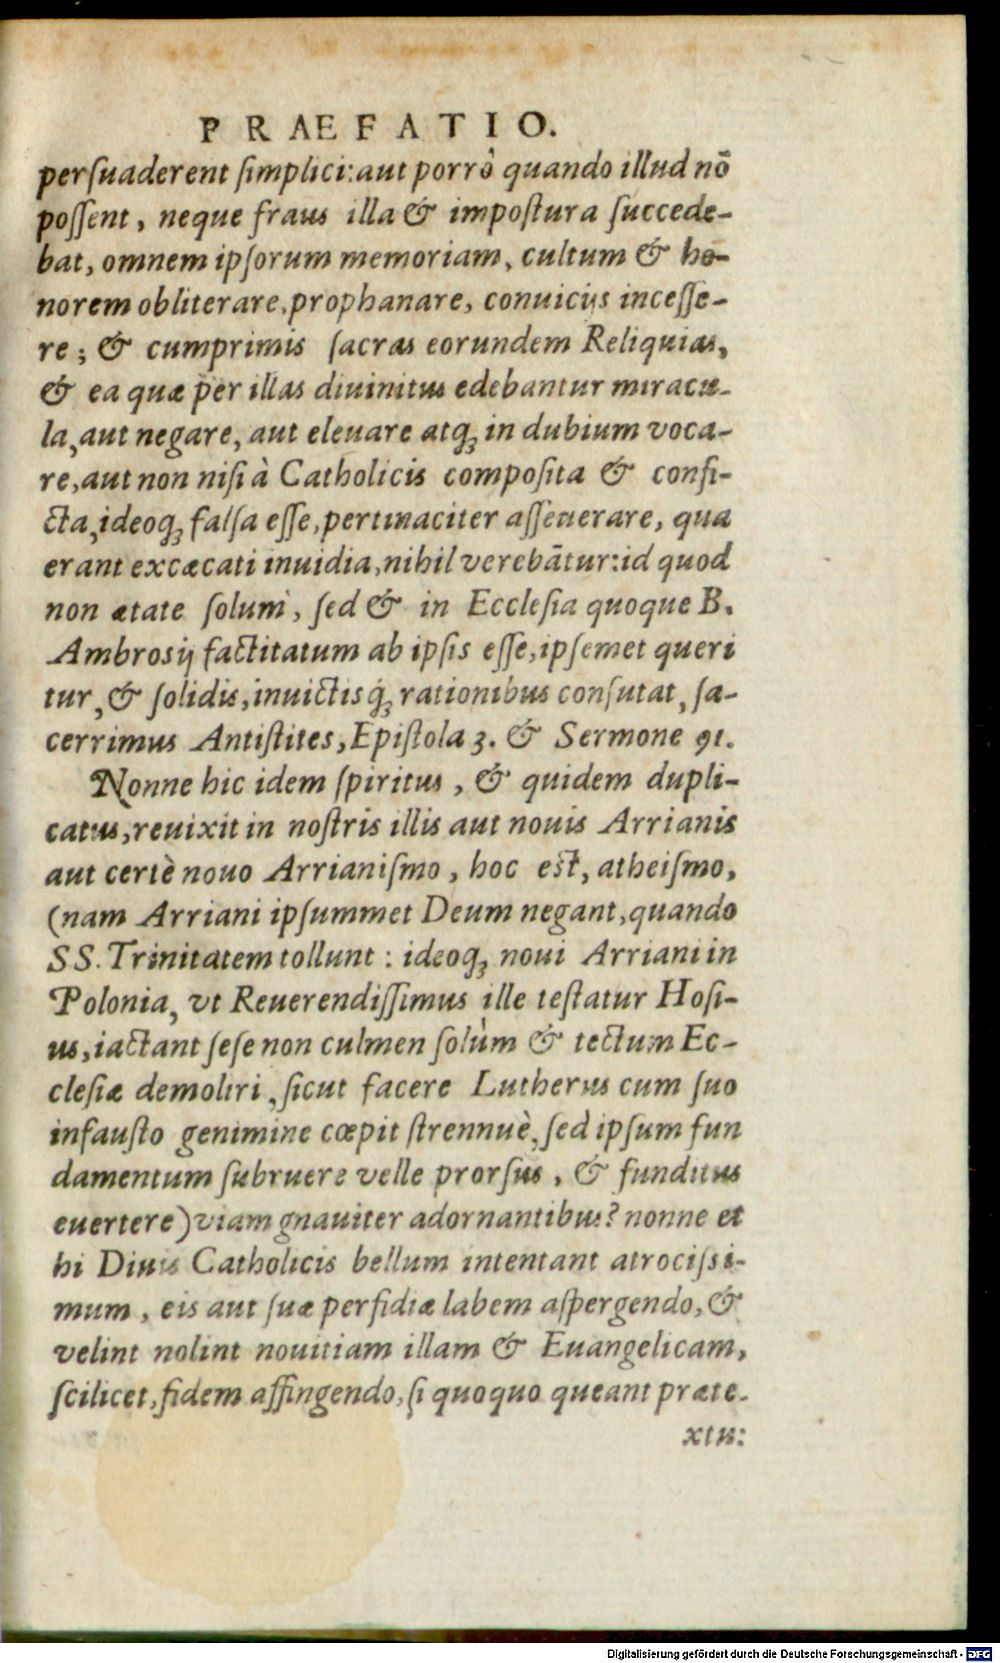 PRAEFATIO.
perſuaderent ſimplici: aut porrò quando illud nõ
poſſent, neque fraus illa & impoſtura ſuccede-
bat, omnem ipſorum memoriam, cultum & ho-
norem obliterare, prophanare, conuicijs inceſſe-
re; & cumprimis ſacras eorundem Reliquias,
& ea quæ per illas diuinitus edebantur miracu-
la, aut negare, aut eleuare atq́; in dubium voca-
re, aut non niſi à Catholicis compoſita & confi-
cta, ideoq́; falſa eſſe, pertinaciter aſſeuerare, qua
erant excæcati inuidia, nihil verebãtur: id quod
non ætate ſolum, ſed & in Eccleſia quoque B.
Ambroſij factitatum ab ipſis eſſe, ipſemet queri
tur, & ſolidis, inuictisq́; rationibus confutat, ſa-
cerrimus Antiſtites, Epiſtola 3. & Sermone 91.
Nonne hic idem ſpiritus, & quidem dupli-
catus, reuixit in noſtris illis aut nouis Arrianis
aut certè nouo Arrianiſmo, hoc eſt, atheiſmo,
(nam Arriani ipſummet Deum negant, quando
SS. Trinitatem tollunt: ideoq́; noui Arriani in
Polonia, vt Reuerendiſſimus ille teſtatur Hoſi-
us, iactant ſeſe non culmen ſolùm & tectum Ec-
cleſiæ demoliri, ſicut facere Lutherus cum ſuo
infauſto genimine cœpit ſtrennuè, ſed ipſum fun
damentum ſubruere velle prorſus, & funditus
euertere) viam gnauiter adornantibus? nonne et
hi Diuis Catholicis bellum intentant atrociſsi-
mum, eis aut ſuæ perfidiæ labem aſpergendo, &
velint nolint nouitiam illam & Euangelicam,
ſcilicet, fidem affingendo, ſi quoquo queant præte-
xtu:
Digitalisierung gefördert durch die Deutsche Forschungsgemeinschaft - DFG